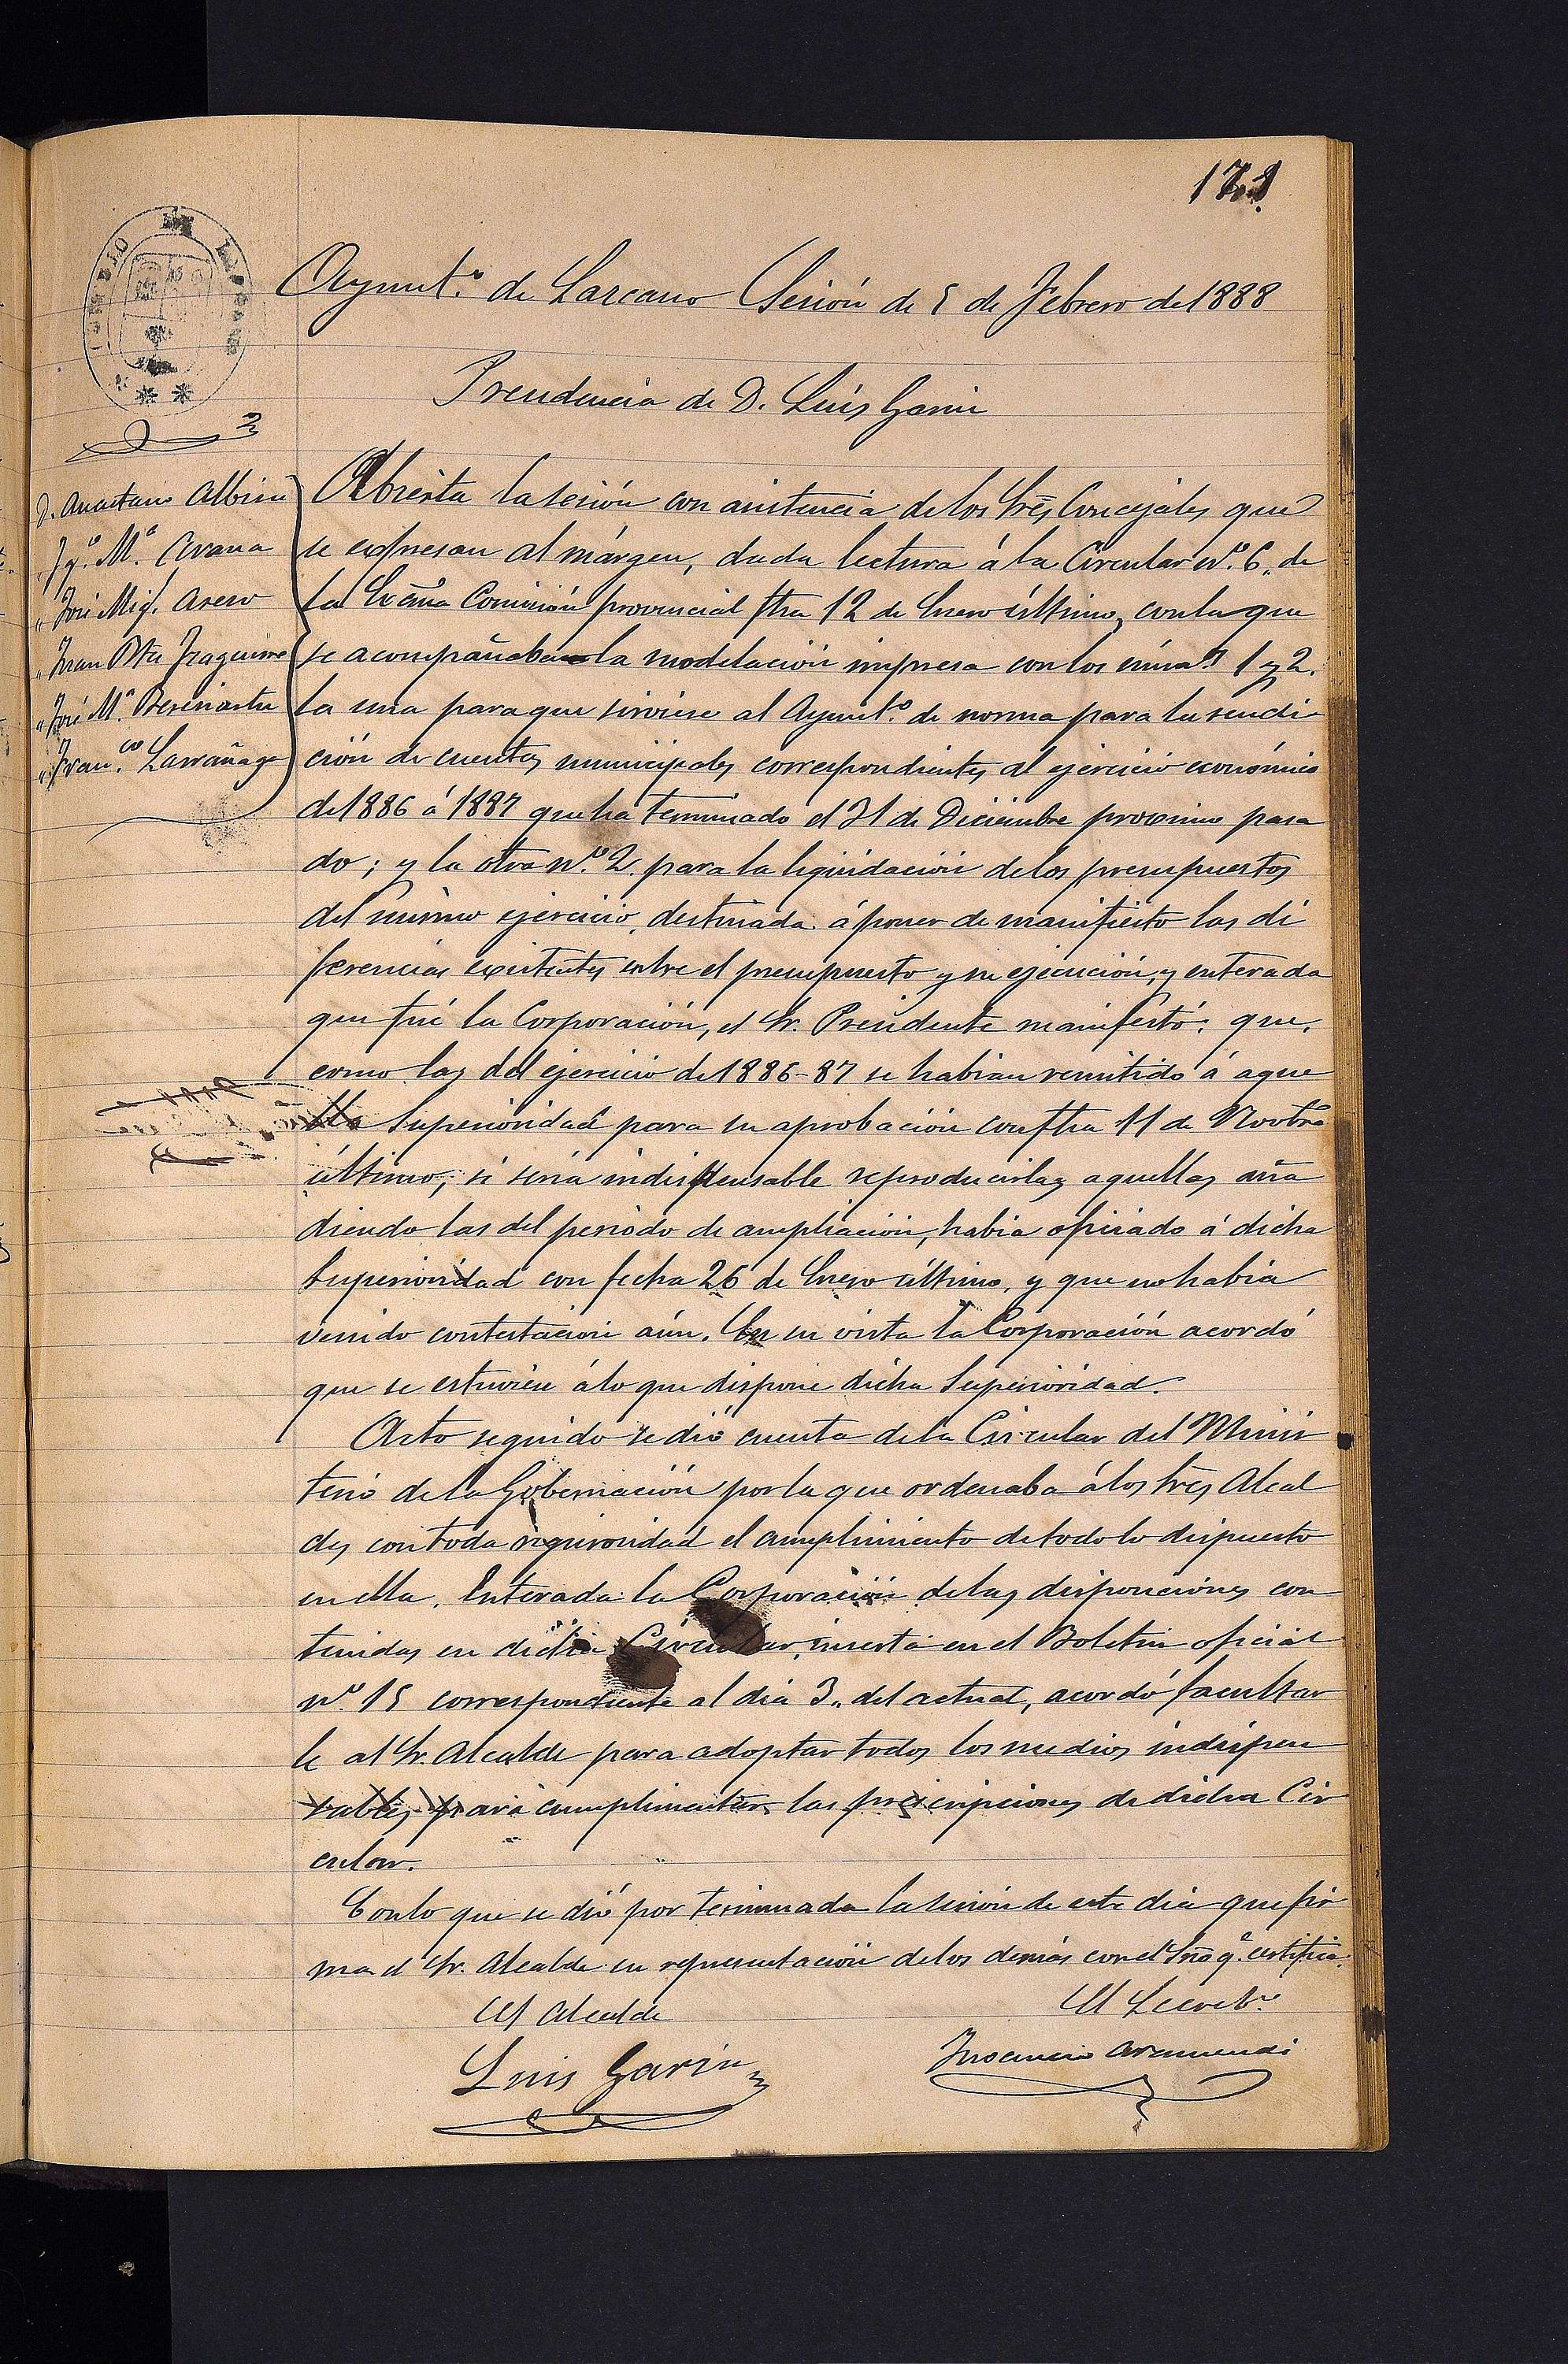 Ayunt.º de Lazcano Sesión de 5 de Febrero de 1888
Presidencia de D. Luís Garin
D. Anastasio Albisu
" Ig.º M.ª Arana
" José Mig.l Asero
" Juan Bta Izaguirre
" José M.ª Beresiartu
" Fran.co Larrañaga
Abierta la sesión con asistencia de los Srēs Concejales que
se expresan al márgen, dada lectura á la Circular N.º 6,, de
la Excm̃a Comisión provincial fha 12 de Enero último, con la que
se acompañaba la modelación impresa con los núms 1 y 2.
la una para que sirviese al Ayunt.º de norma para la rendi
ción de cuentas municipales correspondientes al ejercicio económico
de 1886 á 1887 que ha terminado el 31 de Diciembre proximo pasa
do; y la otra N.º 2. para la liquidación de los presupuestos
del mismo ejercicio, destinada á poner de manifiesto las di
ferencias existentes entre el presupuesto y su ejecución, y enterada
que fué la Corporación, el Sr. Presidente manifestó: que,
como las del ejercicio de 1886-87 se habian remitido á aque
lla Superioridad para su aprobación con fha 11 de Novbrē
último, si sería indispensable reproducirlas aquellas aña
diendo las del periodo de ampliación, habia oficiado á dicha
Superioridad con fecha 26 de Enero último, y que no habia
venido contestacion aún. En su vista la Corporación acordó
que se estuviese á lo que dispone dicha Superioridad.
Acto seguido se dió cuenta de la Circular del Minis
terio de la Gobernación por la que ordenaba á los Srēs Alcal
des con toda rigurosidad el cumplimiento de todo lo dispuesto
en ella. Enterada la Corporación de las disposiciones con
tenidas en dicha Circular, inserta en el Boletin oficial
N.º 15 correspondiente al dia 3,, del actual, acordó facultar
le al Sr. Alcalde para adoptar todos los medios indispen
sables para cumplimentar las prescripciones de dicha Cir
cular.
Con lo que se dió por terminada la sesión de este dia que fir
ma el Sr. Alcalde en representación de los demás con el Srio q.e certifica.
El Alcalde
El Secret.º
Luis Garin
Inocencio Aramendi